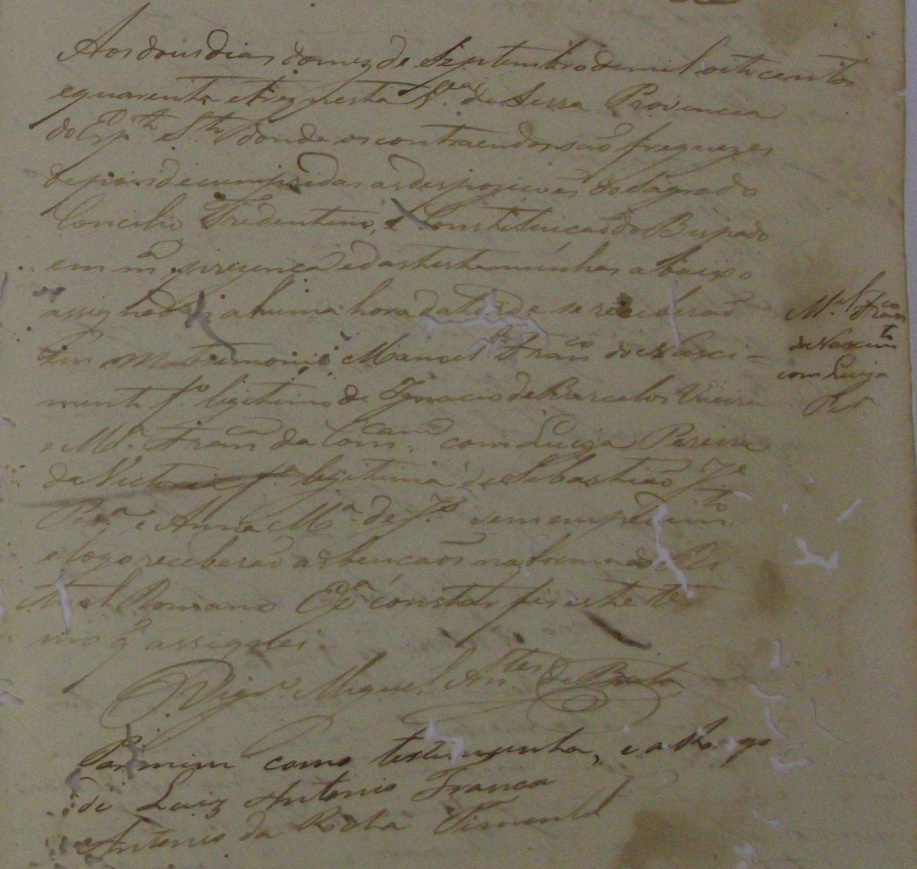 Aos dous dias do mez de Septembro de mil oito centos
e quarenta e trez nesta V.ª da Serra Provincia
do Esp.to St.º donde os contraendos são freguezes
depois de cumpridas as despoziçoẽs do Sagrado
Concilio Tredentino, e Constituicão do Bispado
em m.ª presença e das testemunhas abaixo
assignados, a huma hora da tarde se receberaõ
em Matremonio Manoel Fran.co do Nasci=
mento f.º legitimo de Ignacio de Barcelos Vieira
e M.ª Fran.ca da Con.cam com Luiza Pereira
da Victoria f.ª legitima de Sebastião J.e
Per.ª e Anna M.ª de J.s sem empedim.to
e logo receberaõ as bencaõs na forma do Ri
tual Romano E p.ª constar fis este ter
mo q̃ assignei.
Vigr.º Miguel An.tes de Brito
Por mim como testemunha, e a Rogo
de Luiz Antonio Franca
Antonio da Rocha Pimentel
M.el Fran.co
do Nascim.to
com Luiza
Per.ª